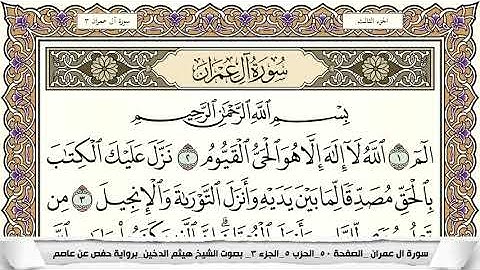 الجزء الثالث
سورة آل عمران ٣
سُورَةُ آلِ عِمْرَانَ
بِسْمِ ٱللَّهِ ٱلرَّحْمَٰنِ ٱلرَّحِيمِ
الٓمٓ ١ ٱللَّهُ لَآ إِلَٰهَ إِلَّا هُوَ ٱلْحَىُّ ٱلْقَيُّومُ ٢ نَزَّلَ عَلَيْكَ ٱلْكِتَٰبَ
بِٱلْحَقِّ مُصَدِّقًا لِّمَا بَيْنَ يَدَيْهِ وَأَنزَلَ ٱلتَّوْرَىٰةَ وَٱلْإِنجِيلَ ٣ مِن
سورة ال عمران _الصفحة ٥٠_الحزب ٥_الجزء ٣_ بصوت الشيخ هيثم الدخين_برواية حفص عن عاصم